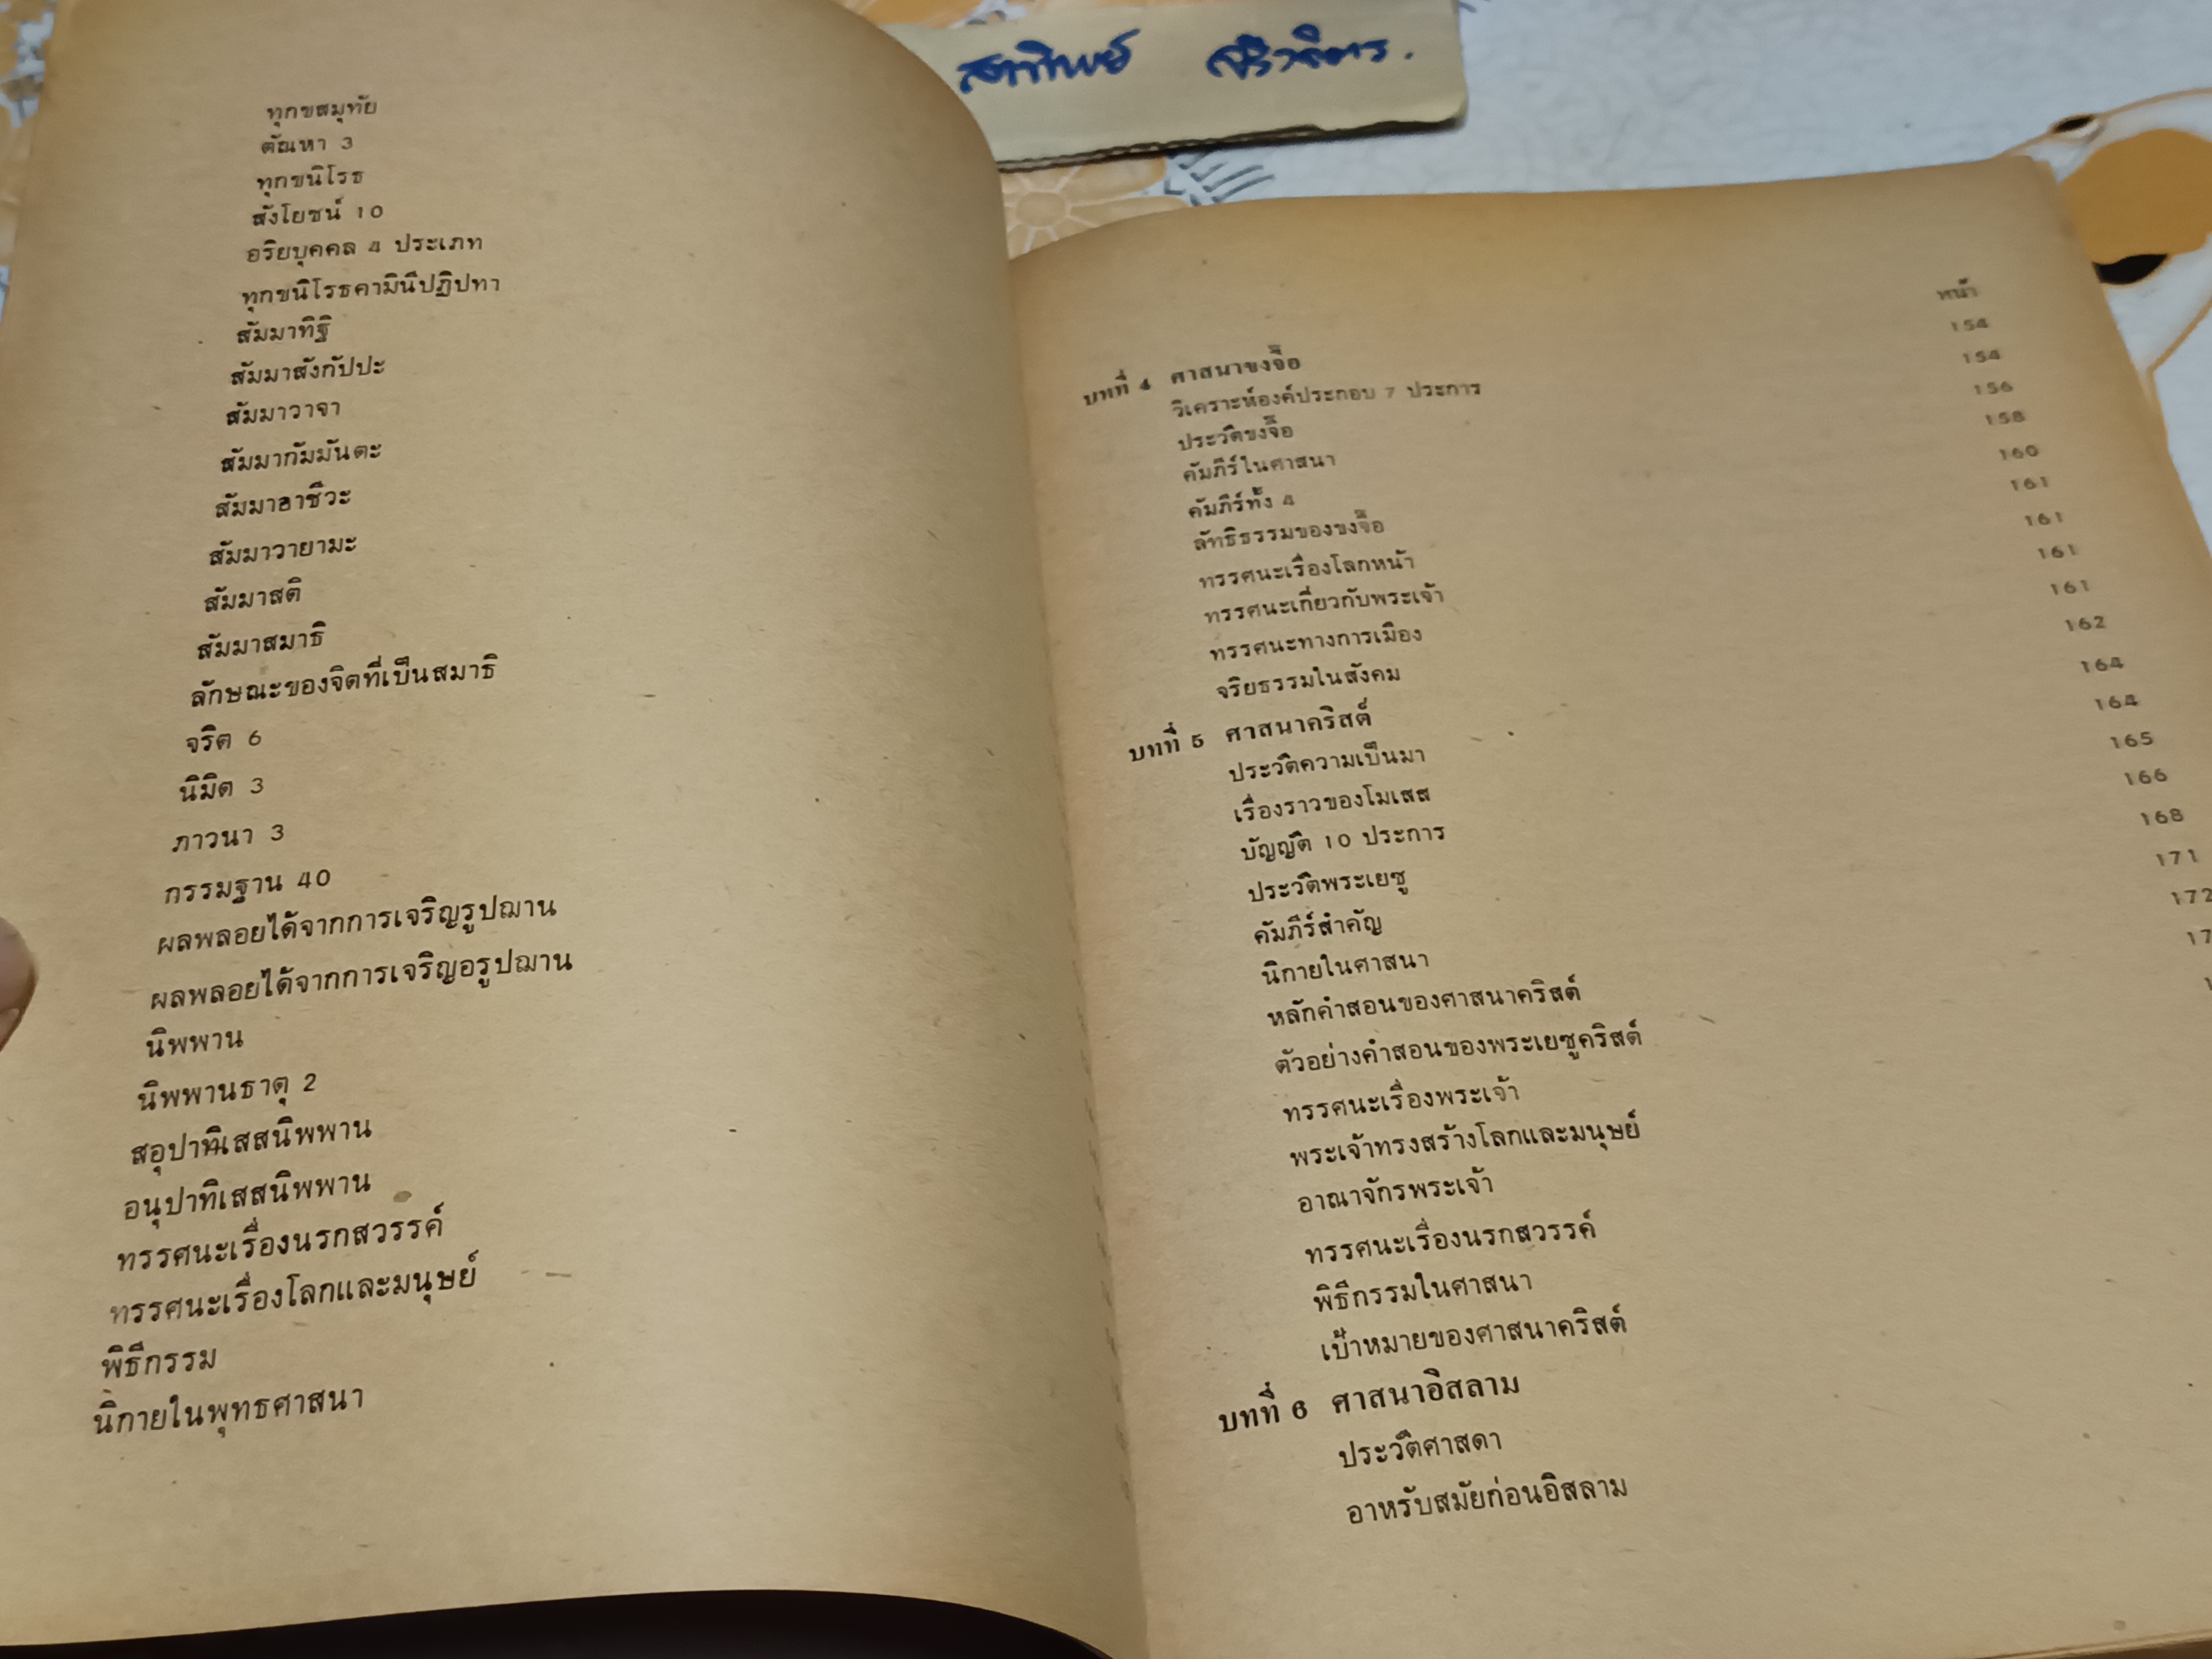 ทุกขสมุทัย
ตัณหา 3
ทุกขนิโรธ
สังโยชน์ 10
อริยบุคคล 4 ประเภท
ทุกขนิโรธคามินีปฏิปทา
สัมมาทิฐิ
สัมมาสังกัปปะ
สัมมาวาจา
สัมมากัมมันตะ
สัมมาอาชีวะ
สัมมาวายามะ
สัมมาสติ
สัมมาสมาธิ
ลักษณะของจิตที่เป็นสมาธิ
จริต 6
นิมิต 3
ภาวนา 3
กรรมฐาน 40
ผลพลอยได้จากการเจริญรูปฌาน
ผลพลอยได้จากการเจริญอรูปฌาน
นิพพาน
นิพพานธาตุ 2
สอุปาทิเสสนิพพาน
อนุปาทิเสสนิพพาน
ทรรศนะเรื่องนรกสวรรค์
ทรรศนะเรื่องโลกและมนุษย์
พิธีกรรม
นิกายในพุทธศาสนา
หน้า
บทที่ 4 ศาสนาขงจื๊อ 154
วิเคราะห์องค์ประกอบ 7 ประการ 154
ประวัติขงจื๊อ 156
คัมภีร์ในศาสนา 158
คัมภีร์ทั้ง 4 160
ลัทธิธรรมของขงจื๊อ 161
ทรรศนะเรื่องโลกหน้า 161
ทรรศนะเกี่ยวกับพระเจ้า 161
ทรรศนะทางการเมือง 161
จริยธรรมในสังคม 162
บทที่ 5 ศาสนาคริสต์ 164
ประวัติความเป็นมา 164
เรื่องราวของโมเสส 165
บัญญัติ 10 ประการ 166
ประวัติพระเยซู 168
คัมภีร์สำคัญ 171
นิกายในศาสนา 172
หลักคำสอนของศาสนาคริสต์
ตัวอย่างคำสอนของพระเยซูคริสต์
ทรรศนะเรื่องพระเจ้า
พระเจ้าทรงสร้างโลกและมนุษย์
อาณาจักรพระเจ้า
ทรรศนะเรื่องนรกสวรรค์
พิธีกรรมในศาสนา
เป้าหมายของศาสนาคริสต์
บทที่ 6 ศาสนาอิสลาม
ประวัติศาสดา
อาหรับสมัยก่อนอิสลาม